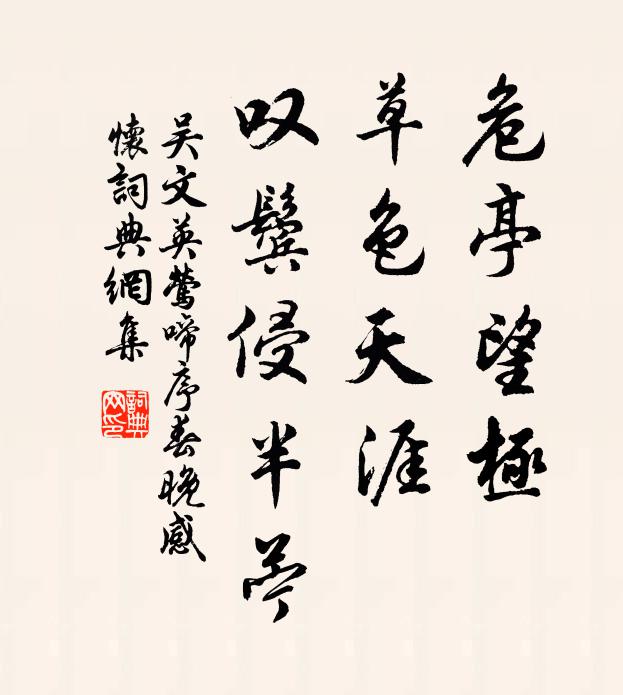 危亭望極
草色天涯
叹鬢侵半苧
吴文英鶯啼序春晚感
懷詞典網集
詞典网印